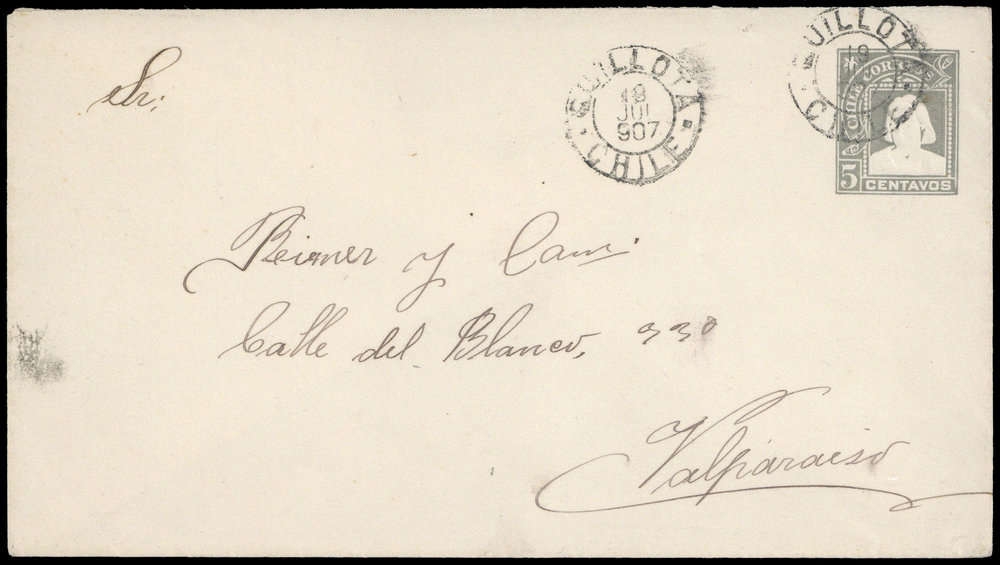 Sr:
QUILLOTA
18
JUL
907
CHILE
QUILLOTA
18
CHILE
CHILE CORREOS
5 CENTAVOS
y
Calle del Blanco, 330
Valparaiso